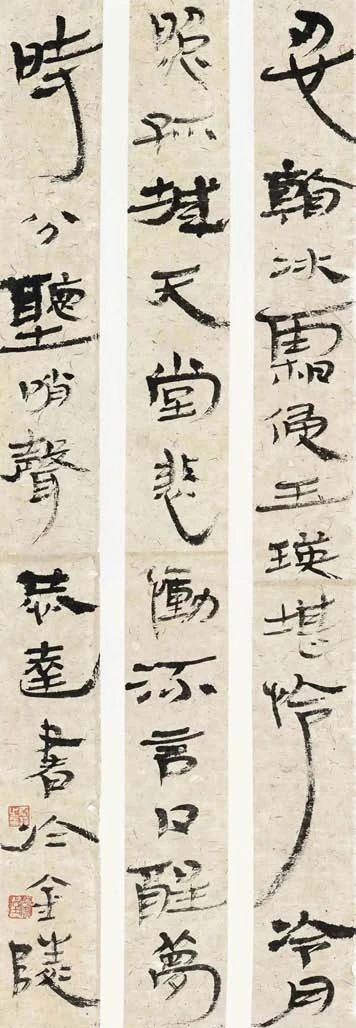 忍翰冰霜侵玉瑛堪怜冷月
照孤城天堂悲慟言日醒夢
時分聽哨聲恭達書於金陵